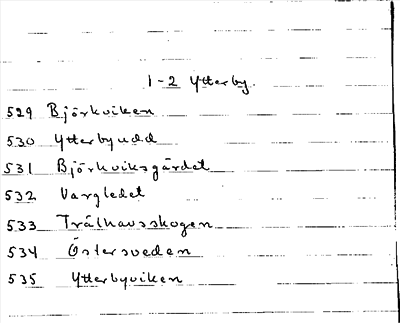 1-2 Ytterby.
529 Björkviken
530 Ytterbyudd
531 Björkviksgärdet
532 Vargledet
533 Trälhavsskogen
534 Östersveden
535 Ytterbyviken